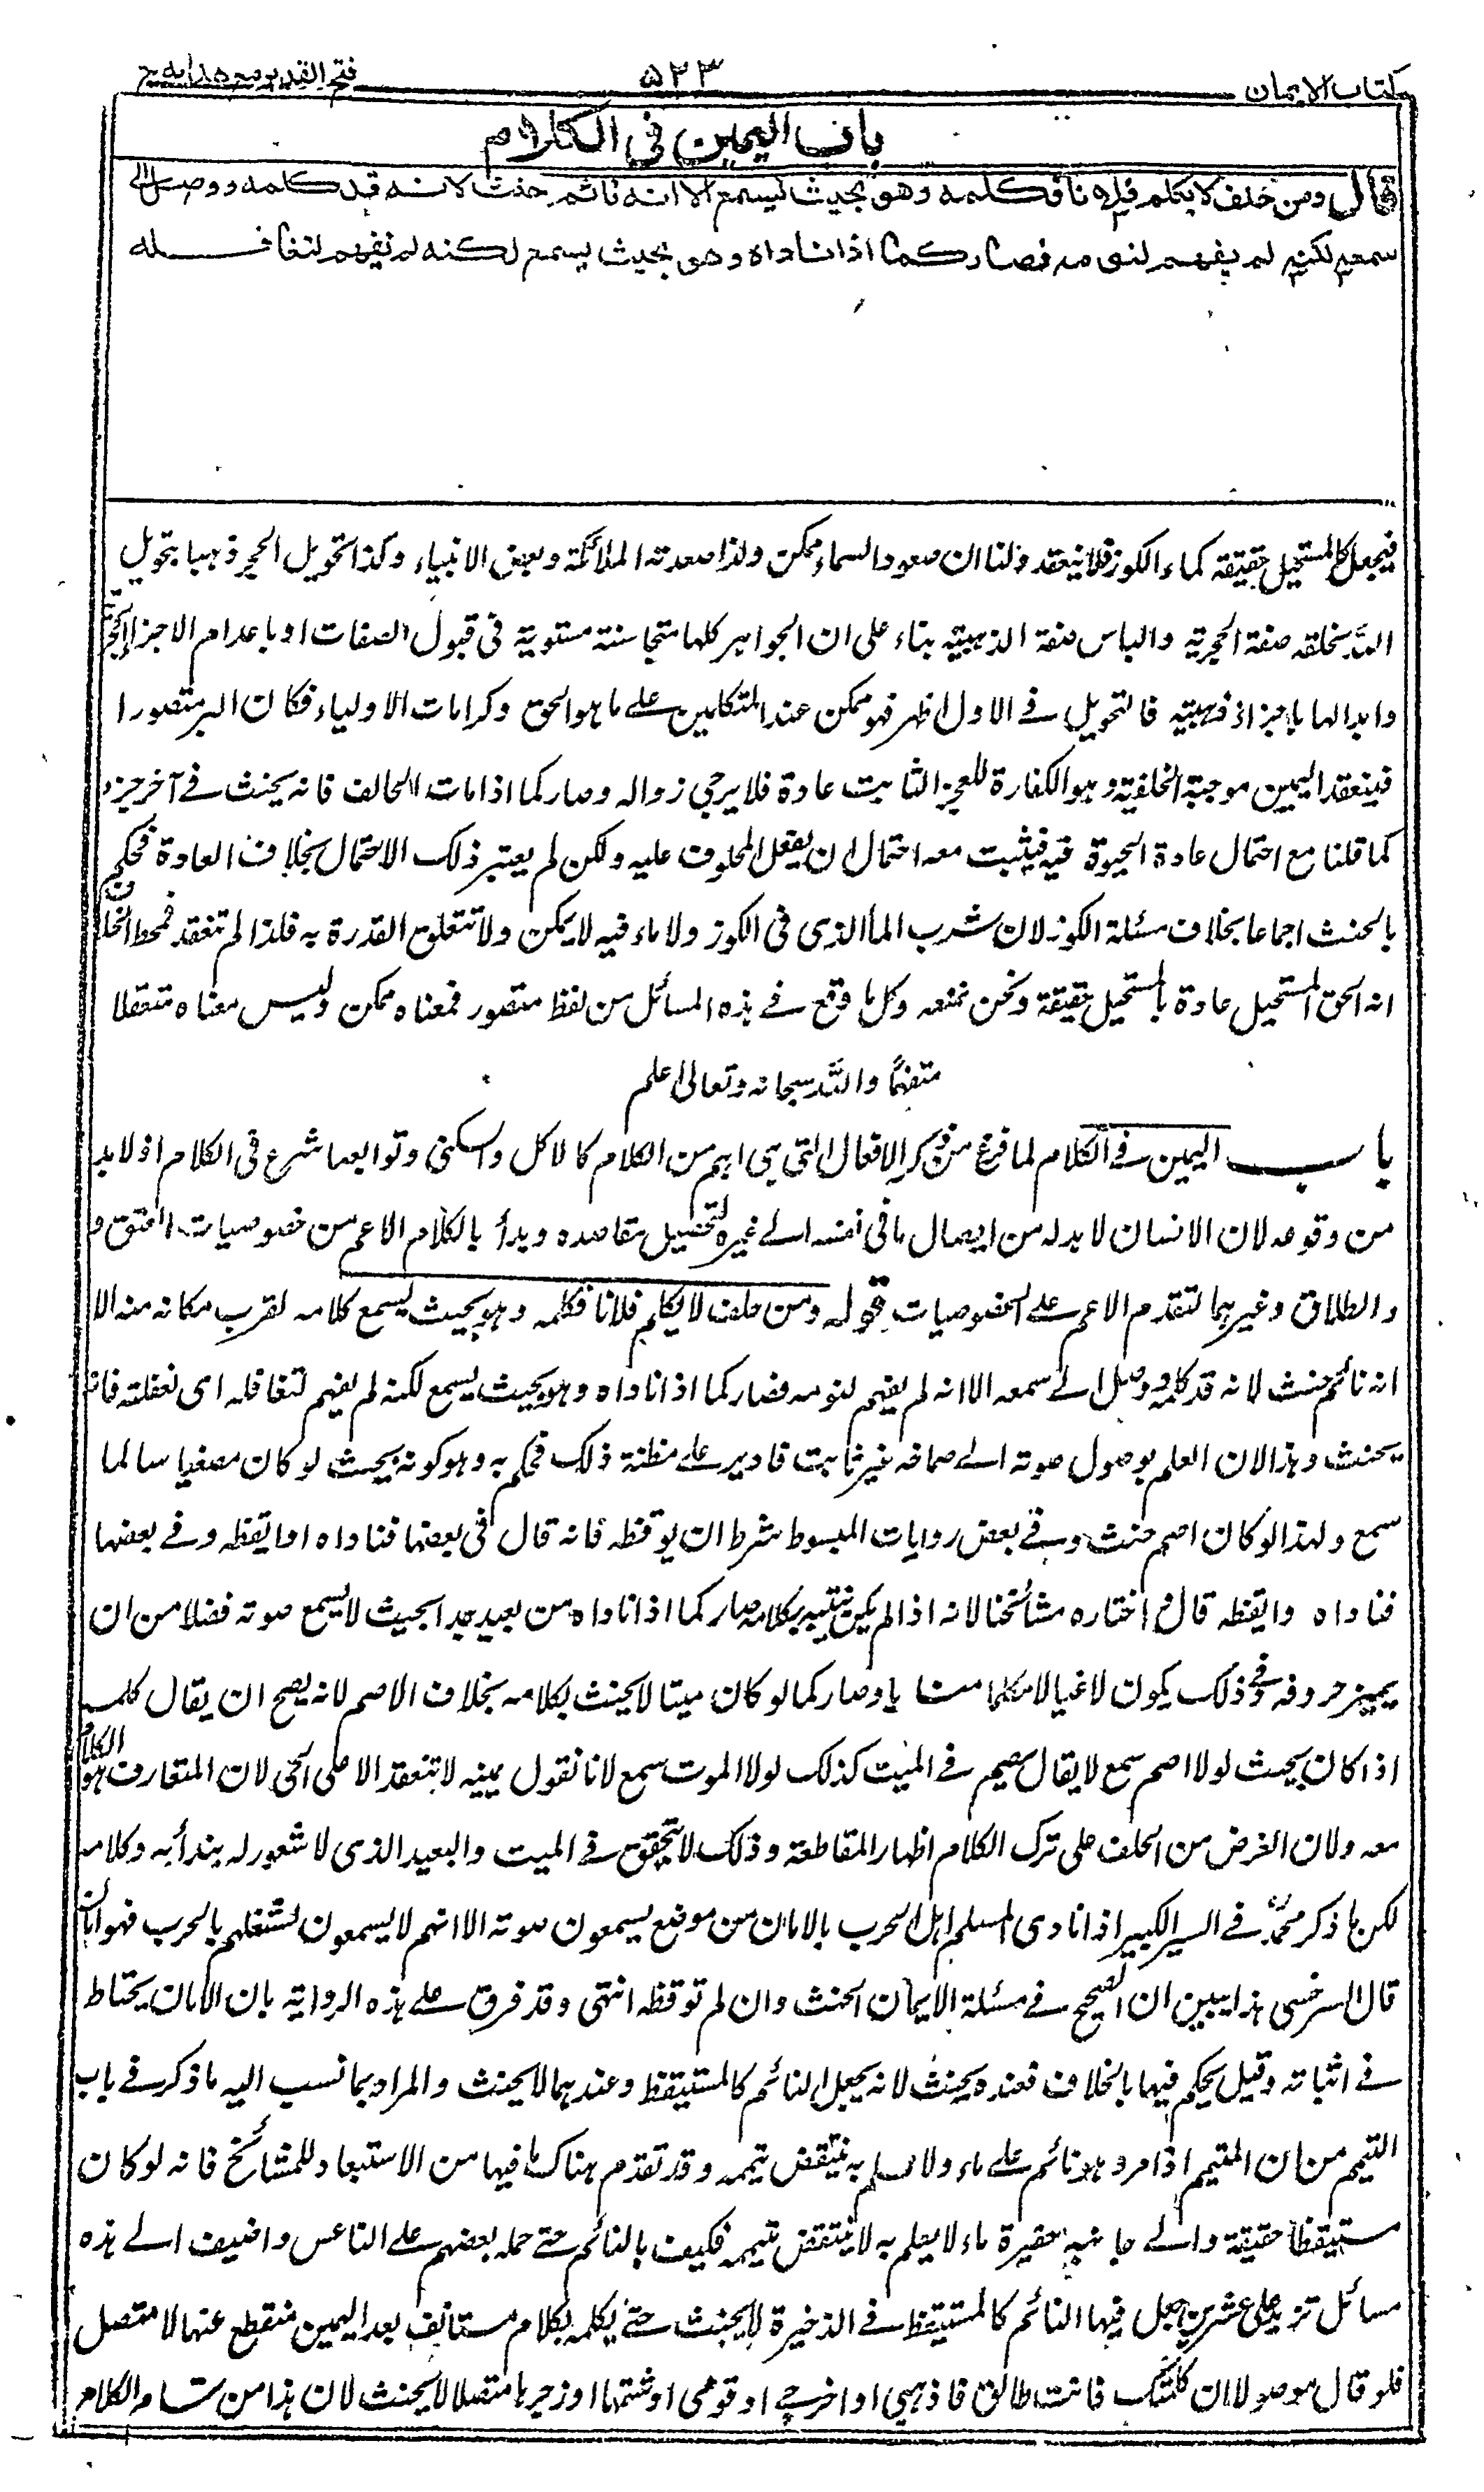 كتاب الايمان ٥٢٣ فتح القدير مع هدايه ج
باب اليمين في الكلام
قال ومن حلف لا يكلم فلانا فكلمه وهو بحيث يسمع الا انه نائم حنث لانه قد كلمه ووصل الى
سمعه لكنه لم يفهم لنومه فصار كما اذا ناداه وهو بحيث يسمع لكنه لم يفهم لتغافله
فيجعل كالمستحيل حقيقة كماء الكوز فلا ينعقد ولنا ان صعود السماء ممكن ولذا صعدته الملائكة وبعض الانبياء وكذا تحويل الحجر ذهبا بتحويل
الله بخلقه صفة الحجرية والباس صفة الذهبية بناء على ان الجواهر كلها متجانسة مستوية فى قبول الصفات او باعدام الاجزاء الحجرية
وابدالها باجزاء ذهبية فالتحويل فے الاول اظهر فهو ممكن عند المتكلمين علے ما هو الحق وكرامات الاولياء فكان البر متصورا
فينعقد اليمين موجبة لخلفية وهو الكفارة للعجز الثابت عادة فلا يرجى زواله وصار كما اذا مات الحالف فانه يحنث فے آخر جزء
كما قلنا مع احتمال عادة الحيوة فيه فيثبت معه احتمال ان يفعل المحلوف عليه ولكن لم يعتبر ذلك الاحتمال بخلاف العادة فحكم
بالحنث اجماعا بخلاف مسئلة الكوز لان شرب الماء الذى فى الكوز ولا ماء فيه لا يمكن ولا تتعلق القدرة به فلذا لم تنعقد فمحط الخلاف
انه الحق المستحيل عادة بالمستحيل حقيقة ونحن نمنعه وكل ما وقع فے هذه المسائل من لفظ متصور فمعناه ممكن وليس معناه متعقلا
متفهما والله سبحانه وتعالى اعلم
باب اليمين فے الكلام لما فرغ من ذكر الافعال التى هى اهم من الكلام كالاكل والسكنى وتوابعها شرع فى الكلام اذ لا بد
من وقوعه لان الانسان لا بد له من ايصال ما فى نفسه الے غيره لتحصيل مقاصده وبدأ بالكلام الاعم من خصوصيات العتق و
والطلاق وغيرهما لتقدم الاعم علے الخصوصيات قوله ومن حلف لا يكلم فلانا فكلمه وهو بحيث يسمع كلامه لقرب مكانه منه الا
انه نائم حنث لانه قد كلمه ووصل الے سمعه الا انه لم يفهم لنومه فصار كما اذا ناداه وهو بحيث يسمع لكنه لم يفهم لتغافله اى لغفلته فانه
يحنث وهذا لان العلم بوصول صوته الے صماخه غير ثابت فادير علے مظنة ذلك فحكم به وهو كونه بحيث لو كان مصغيا سالما
سمع ولهذا لو كان اصم حنث وفے بعض روايات المبسوط شرط ان يوقظه فانه قال فى بعضها فناداه او ايقظه وفے بعضها
فناداه وايقظه قال و اختاره مشائخنا لانه اذا لم يكن ينتبه بكلامه صار كما اذا ناداه من بعيد بحيث لا يسمع صوته فضلا من ان
يميز حروفه وفے ذلك يكون لاغيا لا مكلما مناديا وصار كما لو كان ميتا لا يحنث بكلامه بخلاف الاصم لانه يصح ان يقال كلمه
اذا كان بحيث لولا اصم سمع لا يقال يصح فے الميت كذلك لولا الموت سمع لانا نقول يمينه لا تنعقد الا على الحى لان المتعارف هو الكلام
معه ولان الغرض من الحلف على ترك الكلام اظهار المقاطعة وذلك لا يتحقق فے الميت والبعيد الذى لا شعور له بندائه وكلامه
لكن ما ذكر محمد فے السير الكبير اذا نادى المسلم اهل الحرب بالامان من موضع يسمعون صوته الا انهم لا يسمعون لشغلهم بالحرب فهو امان
قال السرخسى هذا يبين ان الصحيح فے مسئلة الايمان الحنث وان لم توقظه انتهى وقد فرق علے هذه الرواية بان الامان يحتاط
فے اثباته وقيل يحكم فيها بالخلاف فعنده يحنث لانه يجعل النائم كالمستيقظ وعندهما لا يحنث والمراد بما نسب اليه ما ذكر فے باب
التيمم من ان المتيمم اذا مر وهو نائم علے ماء ولا يعلم به ينتقض تيممه وقد تقدم هناك ما فيها من الاستبعاد للمشائخ فانه لو كان
مستيقظا حقيقة والے جانبه حفيرة ماء لا يعلم به لا ينتقض تيممه فكيف بالنائم حتے حمله بعضهم علے الناعس واضيف الے هذه
مسائل تزيد على عشرين جعل فيها النائم كالمستيقظ فے الذخيرة لا يحنث حتے يكلمه بكلام مستانف بعد اليمين منقطع عنها لا متصل
فلو قال موصولا ان كلمتك فانت طالق فاذهبى او اخرجے او قومى او شتمها او زجرها متصلا لا يحنث لان هذا من تمام الكلام